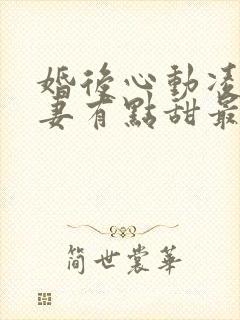 婚後心動凌
妻有點甜最
简世裳華